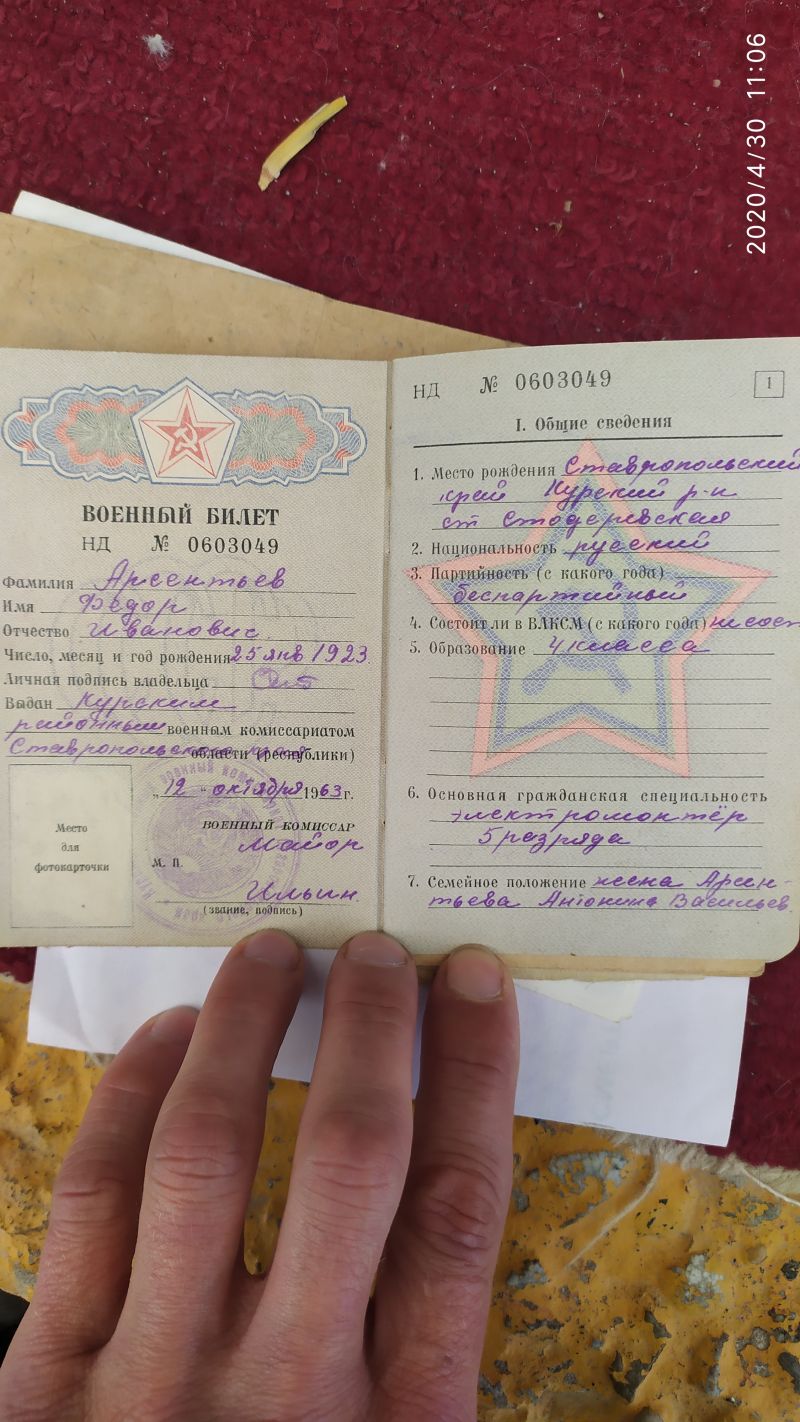 2020/4/30 11:06
ВОЕННЫЙ БИЛЕТ
НД № 0603049
Фамилия Арсентьев
Имя Федор
Отчество Иванович
Число, месяц и год рождения 25 янв 1923
Личная подпись владельца
Выдан Курским
районным военным комиссариатом
Ставропольского края области (республики)
„12“ октября 1963 г.
Место
для
фотокарточки
ВОЕННЫЙ КОМИССАР
Майор
М. П.
Ильин.
(звание, подпись)
НД № 0603049
1
I. Общие сведения
1. Место рождения Ставропольский
край Курский р-н
ст Стодеревская
2. Национальность русский
3. Партийность (с какого года)
беспартийный
4. Состоит ли в ВЛКСМ (с какого года) не сост
5. Образование 4 класса
6. Основная гражданская специальность
электромонтёр
5 разряда
7. Семейное положение жена Арсен-
тьева Антонина Васильев